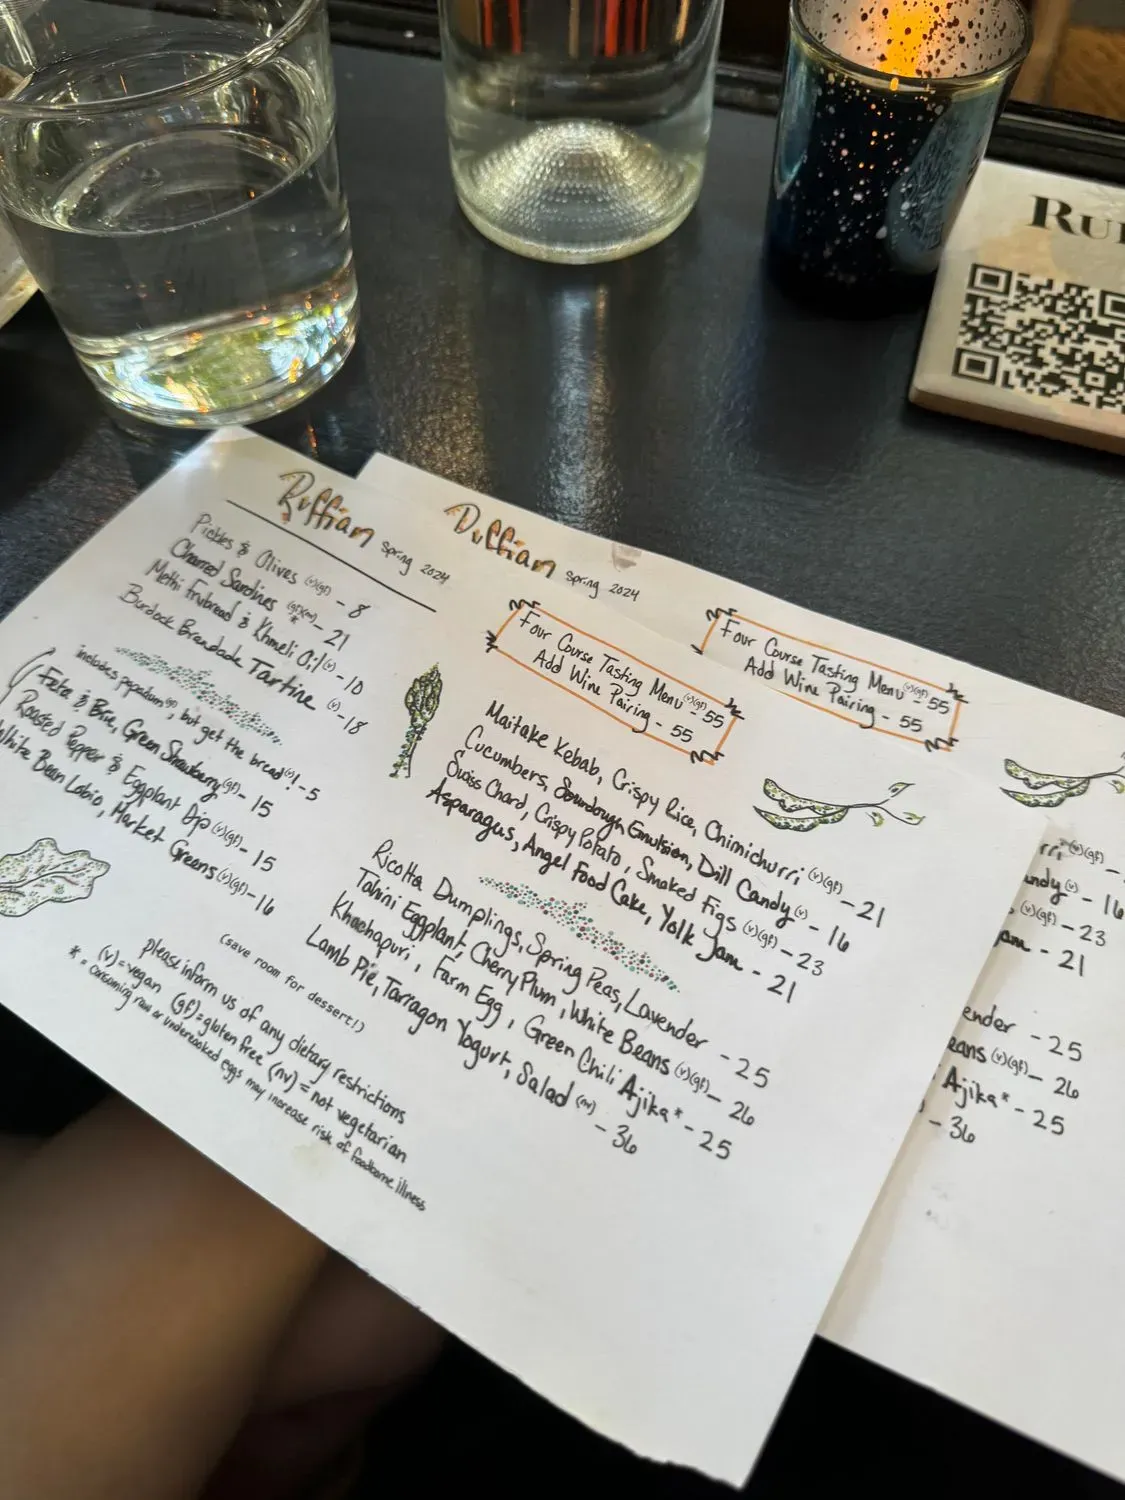 Ruffian spring 2024
Pickles & Olives (v)(gf) - 8
Charred Sardines (gf)(nv)* - 21
Methi Frybread & Khmeli Oil (v) - 10
Burdock Brandade Tartine (v) - 18
includes papadum (gf), but get the bread (v)! - 5
Feta & Brie, Green Strawberry (gf) - 15
Roasted Pepper & Eggplant Dip (v)(gf) - 15
White Bean Lobio, Market Greens (v)(gf) - 16
(save room for dessert!)
please inform us of any dietary restrictions
(v) = vegan (gf) = gluten free (nv) = not vegetarian
* = consuming raw or undercooked eggs may increase risk of foodborne illness
Four Course Tasting Menu (v)(gf) - 55
Add Wine Pairing - 55
Maitake Kebab, Crispy Rice, Chimichurri (v)(gf) - 21
Cucumbers, Sourdough Emulsion, Dill Candy (v) - 16
Swiss Chard, Crispy Potato, Smoked Figs (v)(gf) - 23
Asparagus, Angel Food Cake, Yolk Jam - 21
Ricotta Dumplings, Spring Peas, Lavender - 25
Tahini Eggplant, Cherry Plum, White Beans (v)(gf) - 26
Khachapuri, Farm Egg, Green Chili Ajika* - 25
Lamb Pie, Tarragon Yogurt, Salad (nv) - 36
Ruffian spring 2024
Four Course Tasting Menu (v)(gf) - 55
Add Wine Pairing - 55
rri (v)(gf) -
andy (v) - 16
(v)(gf) - 23
am - 21
ender - 25
eans (v)(gf) - 26
Ajika* - 25
- 36
RU